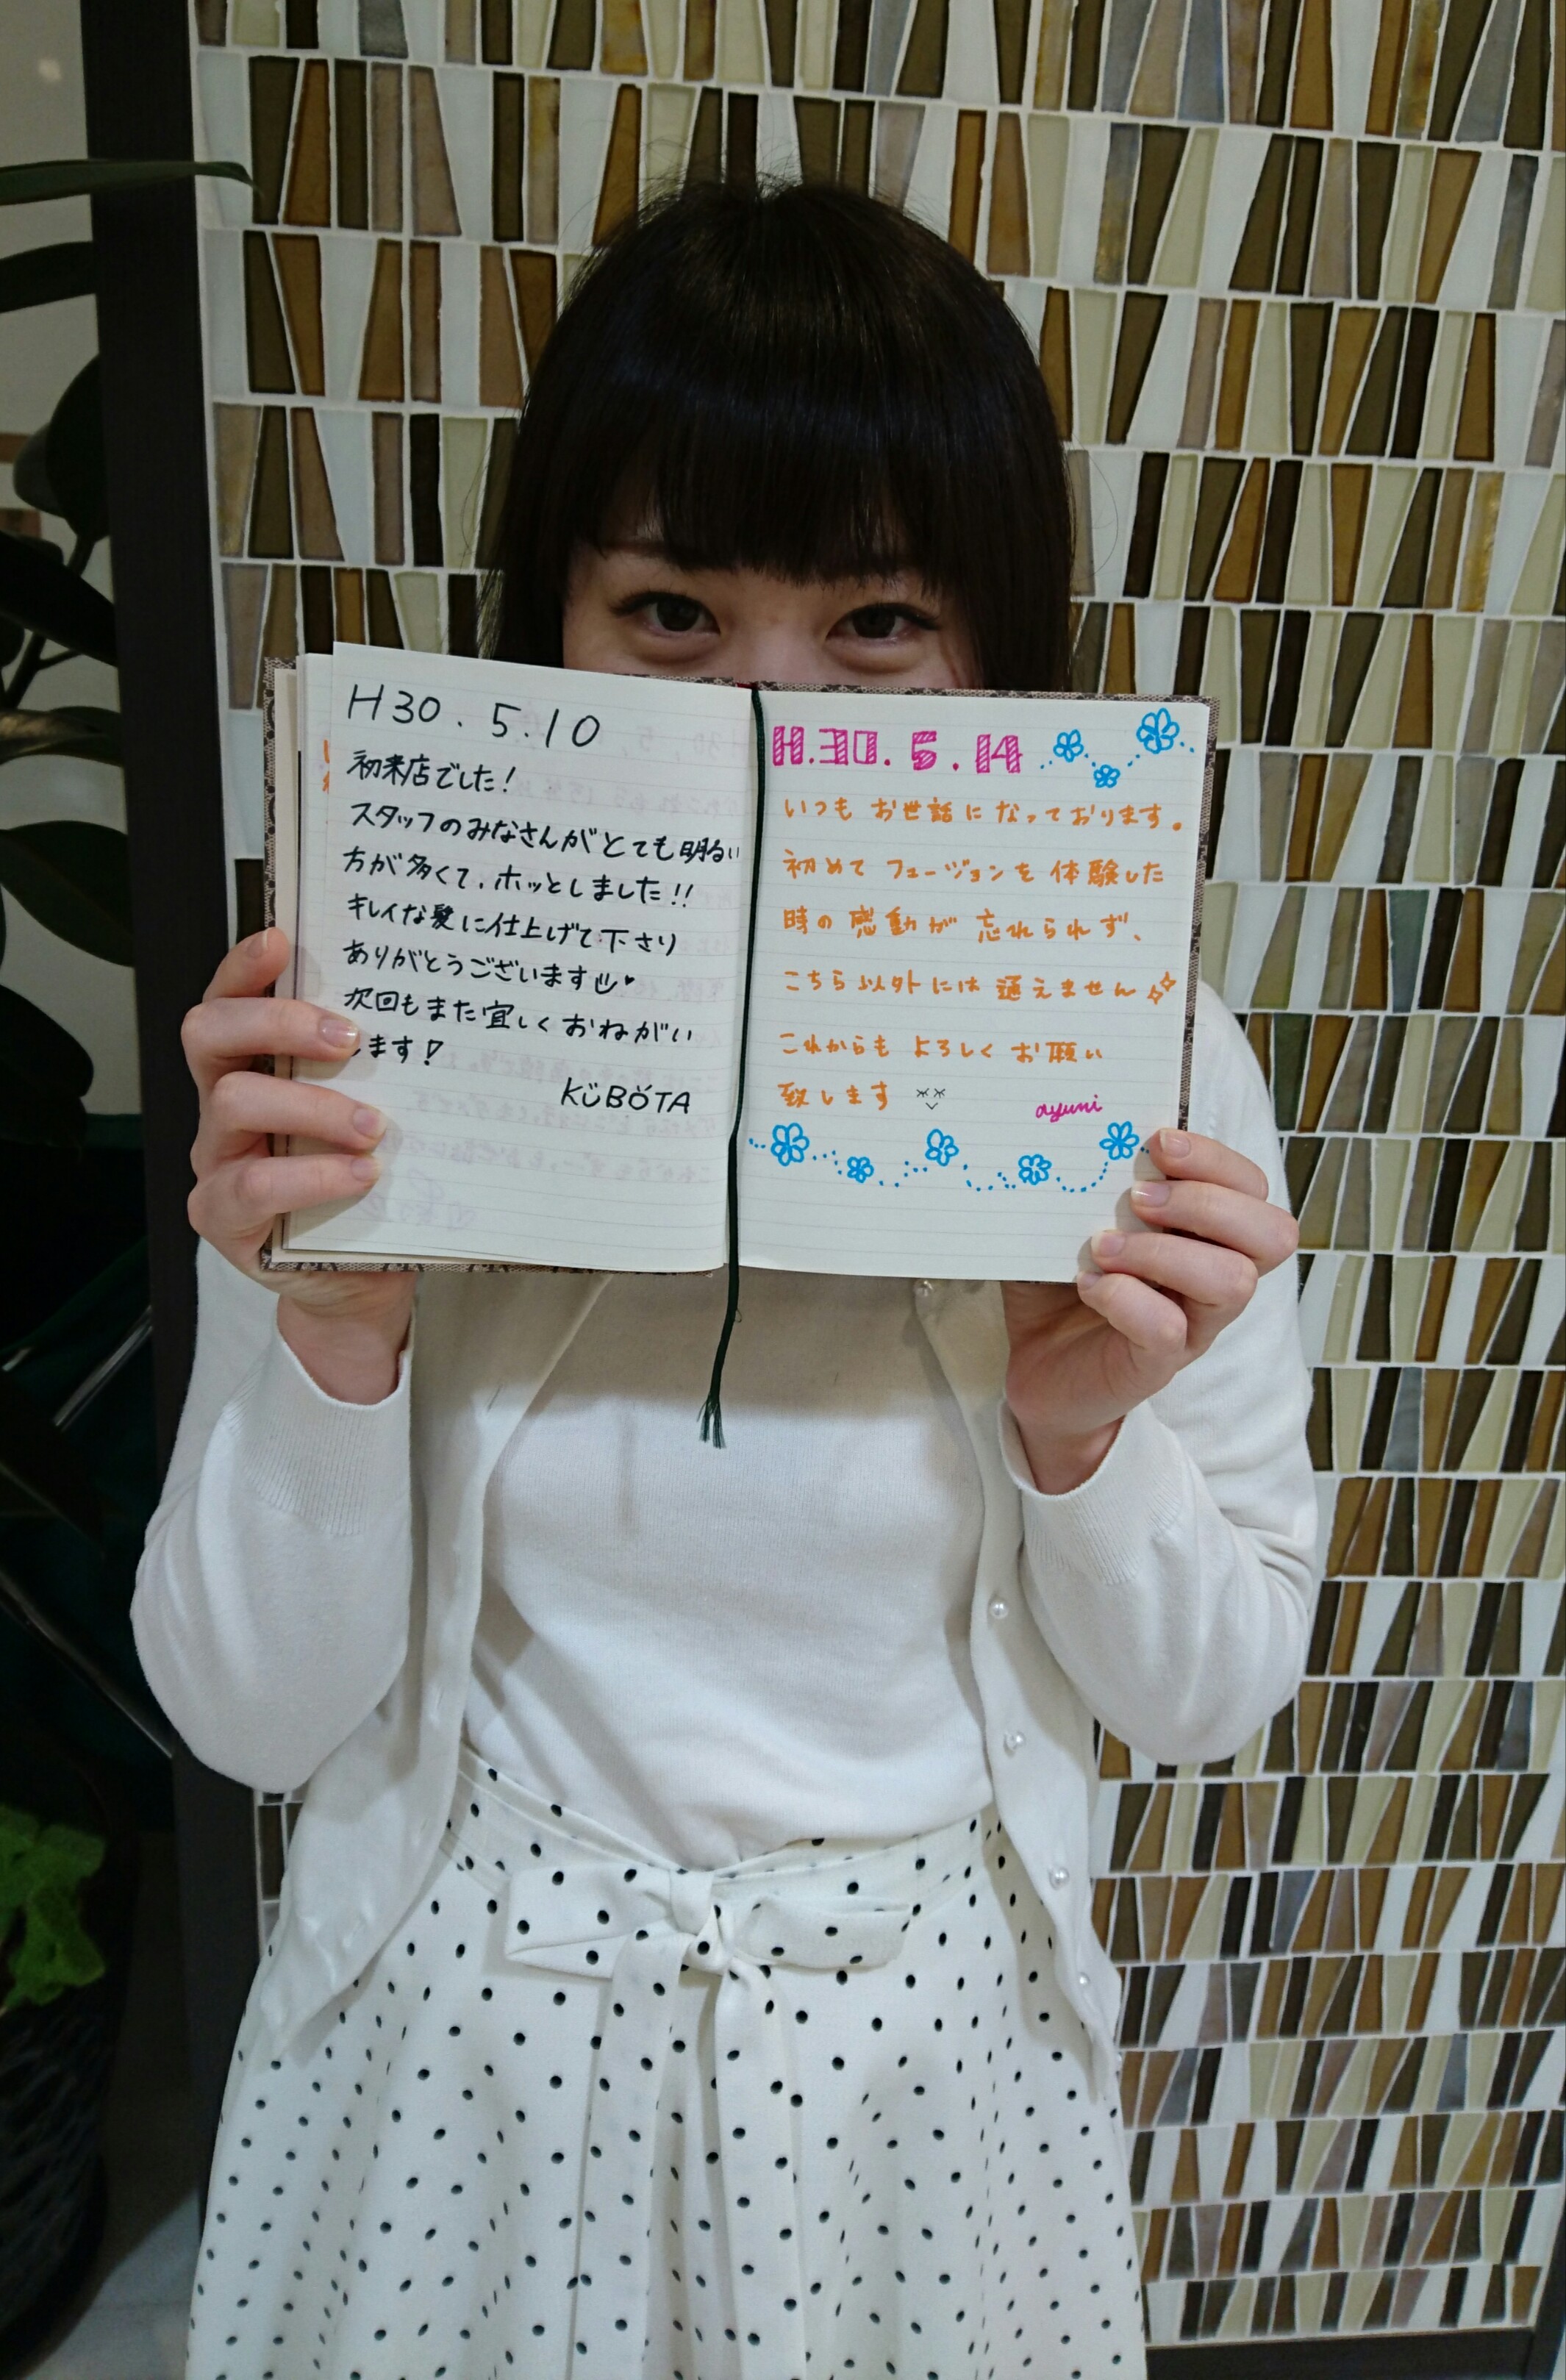 H30.5.10
初来店でした!
スタッフのみなさんがとても明るい
方が多くて、ホッとしました!!
キレイな髪に仕上げて下さり
ありがとうございます
次回もまた宜しくおねがい
します!
KÜBÖTA
H.30.5.14
いつもお世話になっております。
初めてフュージョンを体験した
時の感動が忘れられず、
こちら以外には通えません
これからもよろしくお願い
致します
ayumi